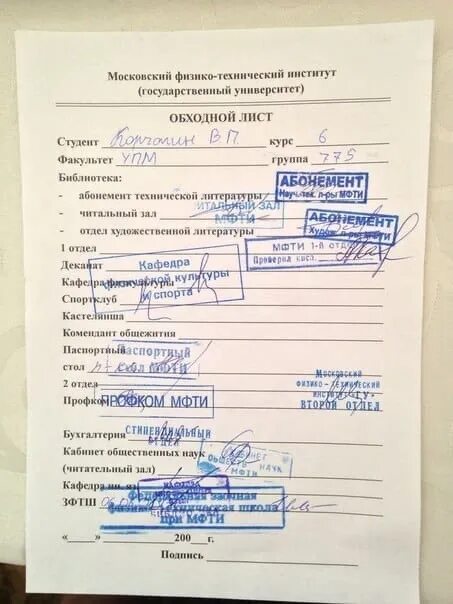 Московский физико-технический институт
(государственный университет)
ОБХОДНОЙ ЛИСТ
Студент Корчагин В П. курс 6
Факультет УПМ группа 775
Библиотека:
АБОНЕМЕНТ
Науч.тех. л-ры МФТИ
- абонемент технической литературы
ИТАЛЬНЫЙ ЗАЛ
МФТИ
- читальный зал
АБОНЕМЕНТ
Худож. л-ры МФТИ
- отдел художественной литературы
1 отдел
МФТИ 1-й отдел
Проверил
Деканат
Кафедра
физической культуры
и спорта
Кафедра физкультуры
Спортклуб
Кастелянша
Комендант общежития
Паспортный
стол
Паспортный
стол МФТИ
2 отдел
Московский
физико-технический
институт ГУ
ВТОРОЙ ОТДЕЛ
Профком
ПРОФКОМ МФТИ
Бухгалтерия
СТИПЕНДИАЛЬНЫЙ
ОТДЕЛ
Кабинет общественных наук
(читательный зал)
КАБИНЕТ
ОБЩЕСТВ НАУК
МФТИ
Кафедра ин. яз
КАФЕДРА
ЗФТШ
Федеральная заочная
физико-техническая школа
при МФТИ
«____» 200 г.
Подпись